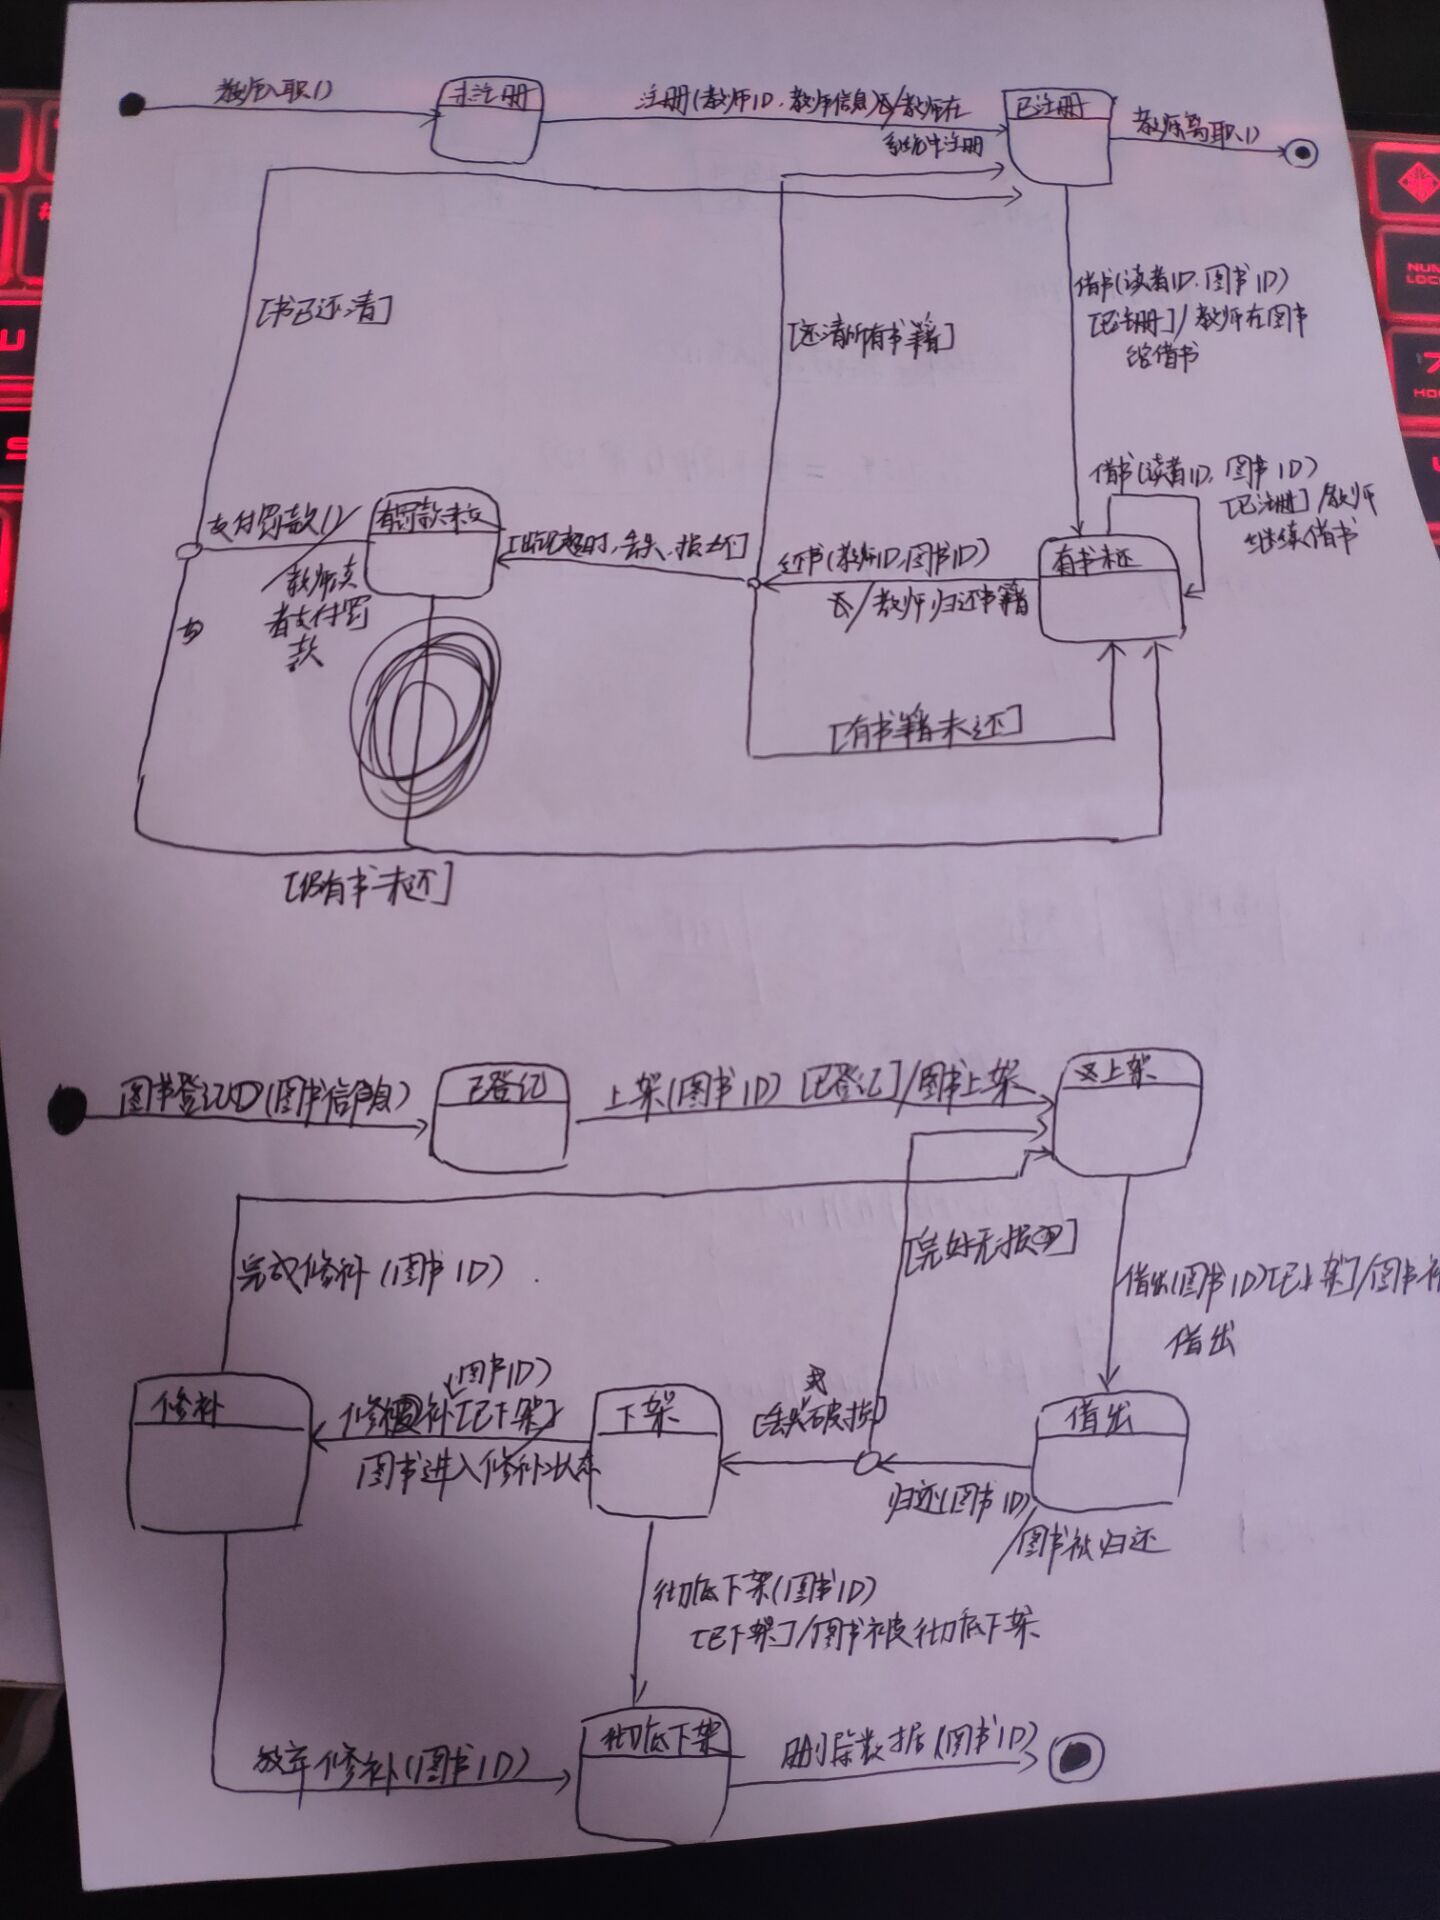 教师入职()
未注册
注册(教师ID、教师信息)/教师在
系统中注册
已注册
教师离职()
[书已还清]
[还清所有书籍]
借书(读者ID、图书ID)
[已注册]/教师在图书
馆借书
借书(读者ID、图书ID)
[已注册]/教师
继续借书
支付罚款()/
教师读
者支付罚
款
有罚款未交
[出现超时、丢失、损坏]
还书(教师ID、图书ID)
/教师归还书籍
有书未还
[有书籍未还]
[仍有书未还]
图书登记(图书信息)
已登记
上架(图书ID) [已登记]/图书上架
上架
[完好无损]
完成修补(图书ID)
借出(图书ID)[已上架]/图书被
借出
修补
(图书ID)
修补[已下架]/
图书进入修补状态
下架
或
[丢失破损]
借出
归还(图书ID)
/图书被归还
彻底下架(图书ID)
[已下架]/图书被彻底下架
放弃修补(图书ID)
彻底下架
删除数据(图书ID)
NUM
LOCK
U
S
#
7